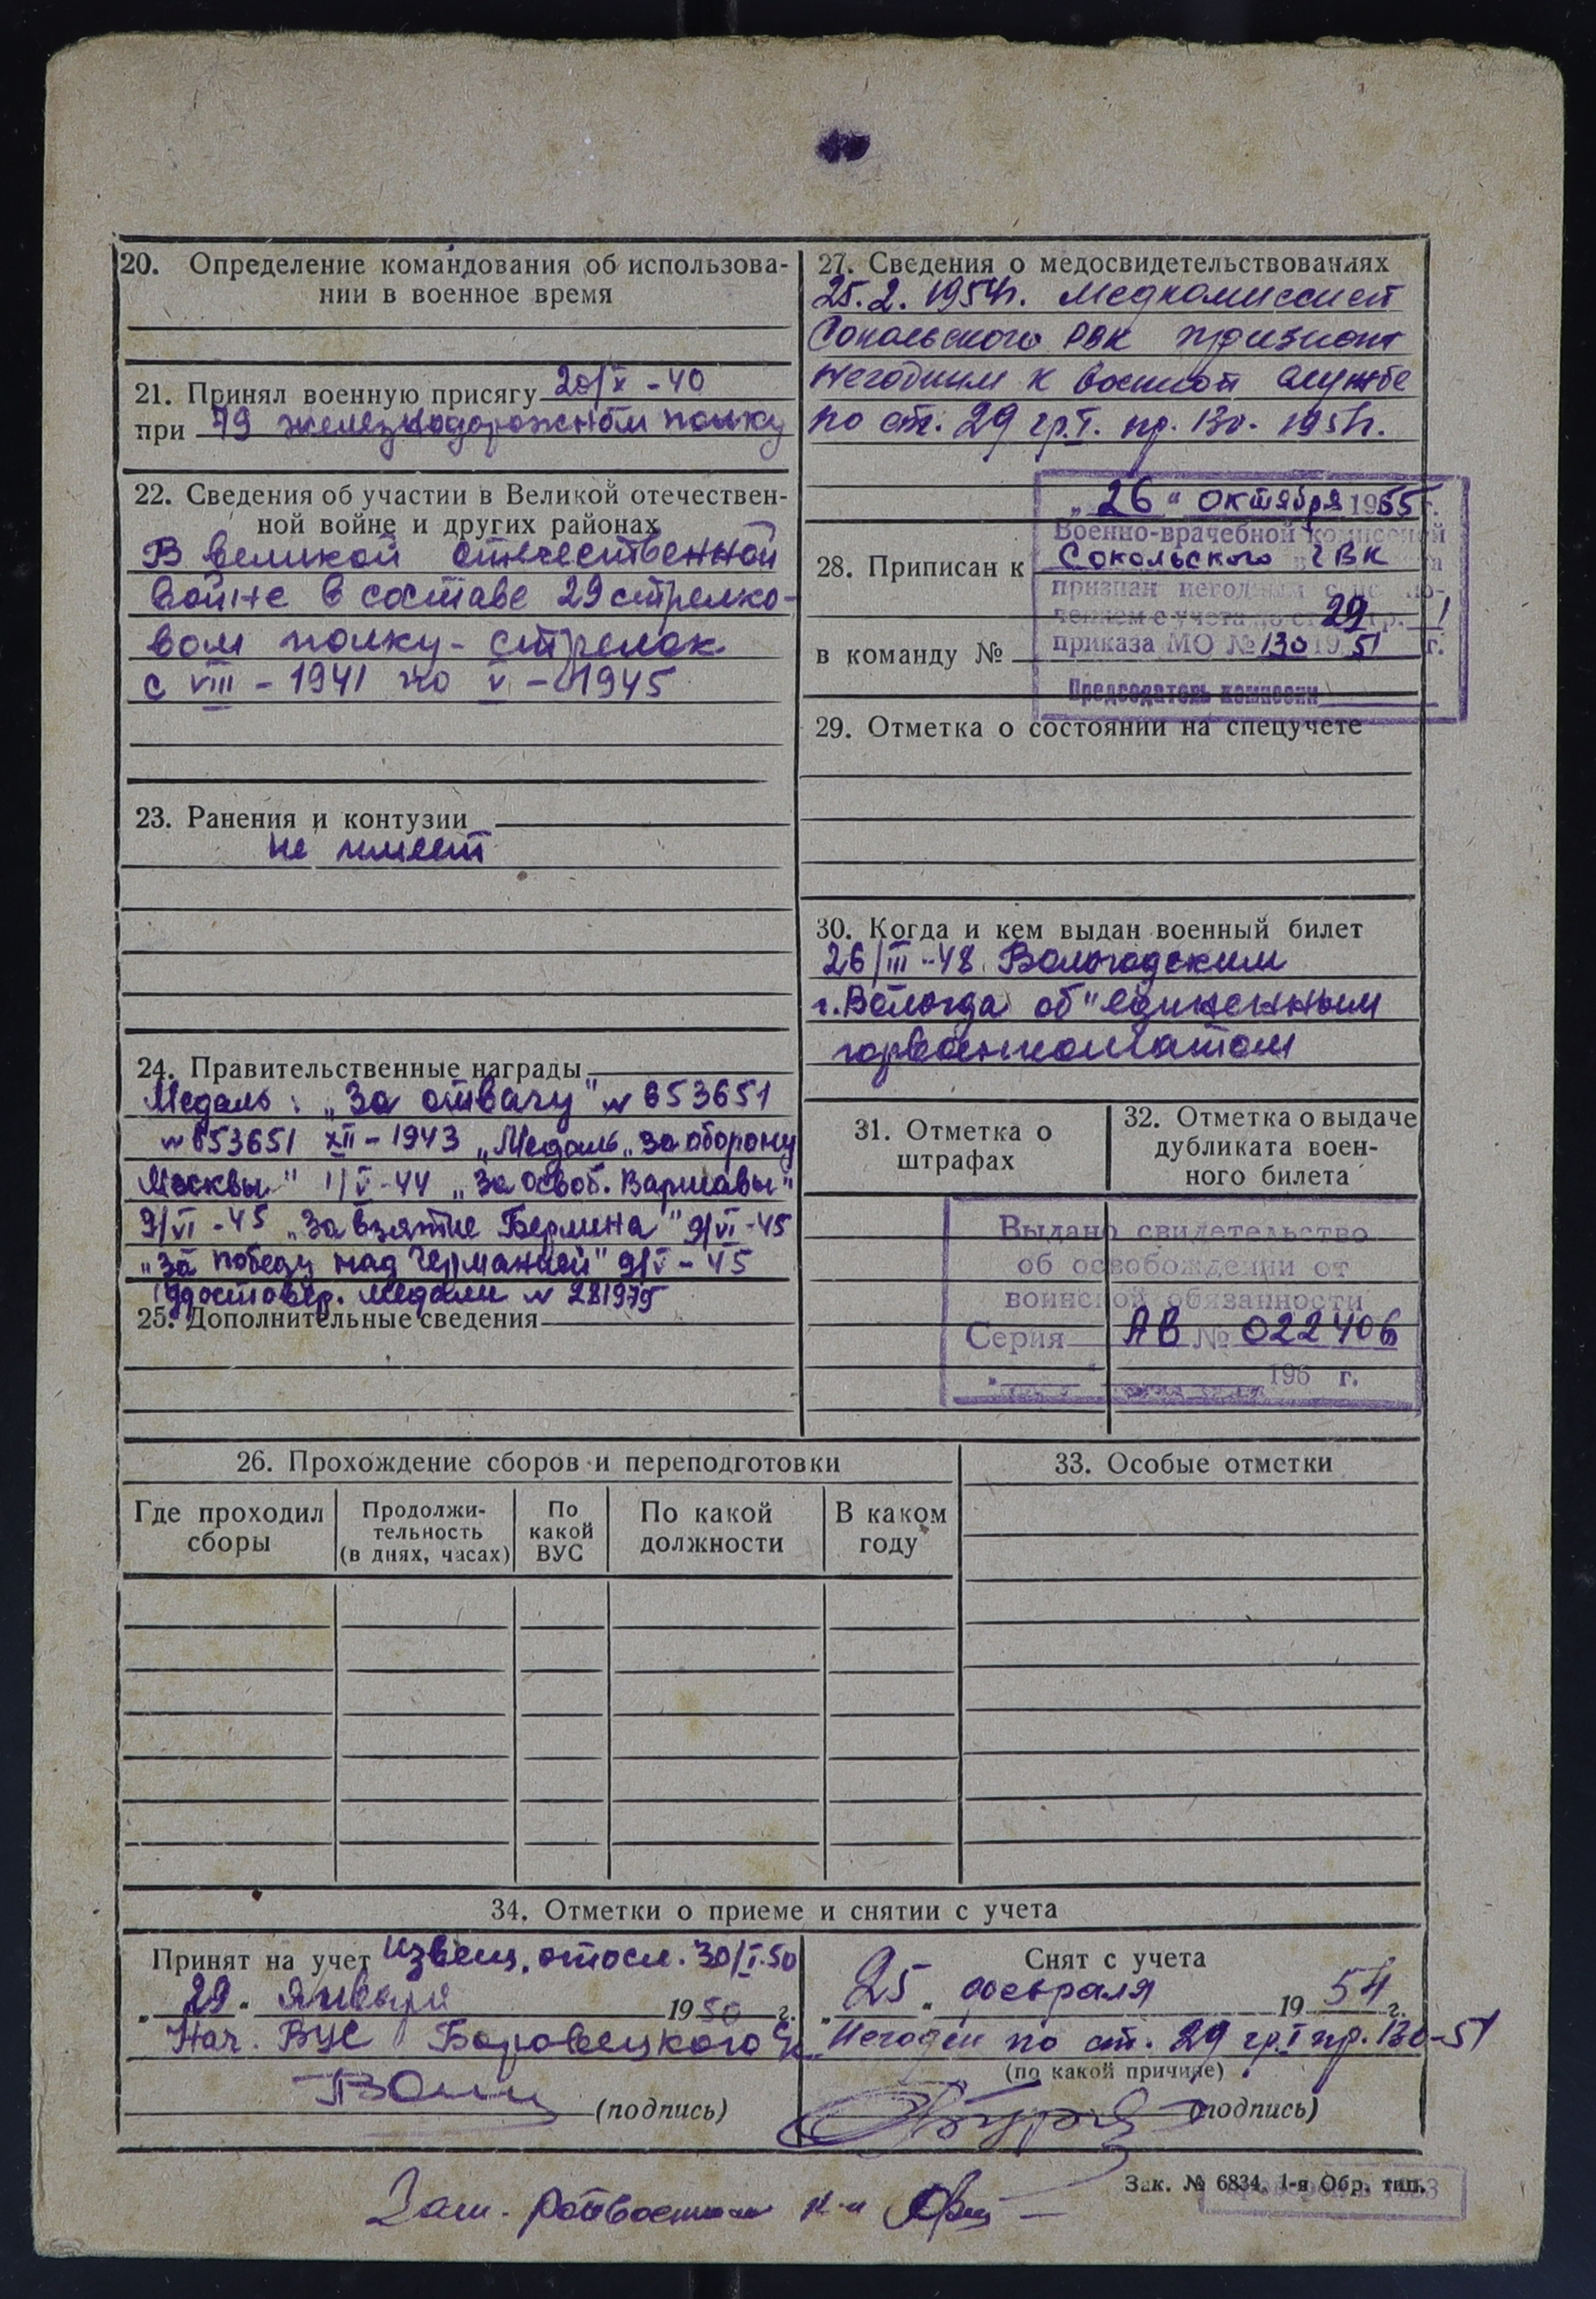 20. Определение командования об использова-
нии в военное время
21. Принял военную присягу 20/X - 40
при 79 железнодорожном полку
22. Сведения об участии в Великой отечествен-
ной войне и других районах
В великой отечественной
войне в составе 29 стрелко-
вом полку - стрелок
с VIII - 1941 по V - 1945
23. Ранения и контузии
не имеет
24. Правительственные награды
Медаль: „За отвагу" № 653651
№ 653651 XII - 1943 „Медаль „За оборону
Москвы" 1/V-44 „За освоб. Варшавы"
9/VI - 45 „За взятие Берлина" 9/VI-45
„За победу над Германией" 9/V - 45
Удостовер. медали № 281975
25. Дополнительные сведения
26. Прохождение сборов и переподготовки
Где проходил
сборы
Продолжи-
тельность
(в днях, часах)
По
какой
ВУС
По какой
должности
В каком
году
27. Сведения о медосвидетельствованиях
25.2.1954г. Медкомиссией
Сокольского РВК признан
негодным к военной службе
по ст. 29 гр. I. пр. 130. 1951г.
„26" октября 1955 г.
Военно-врачебной комиссией
Сокольского ГВК
признан негодным с исклю-
чением с учета по ст. 29 гр. 1
приказа МО № 130 1951 г.
Председатель комиссии
28. Приписан к
в команду №
29. Отметка о состоянии на спецучете
30. Когда и кем выдан военный билет
26/III-48 Вологодским
г. Вологда об"единенным
горвоенкоматом
31. Отметка о
штрафах
32. Отметка о выдаче
дубликата воен-
ного билета
Выдано свидетельство
об освобождении от
воинской обязанности
Серия АВ № 022406
196 г.
33. Особые отметки
34. Отметки о приеме и снятии с учета
Принят на учет извещ. отосл. 30/I.50
„29" января 1950 г.
Нач. ВУС Боровецкого
(подпись)
Снят с учета
„25" февраля 1954 г.
Негоден по ст. 29 гр. I пр. 130-51
(по какой причине)
(подпись)
Зак. № 6834. 1-я Обр. тип.